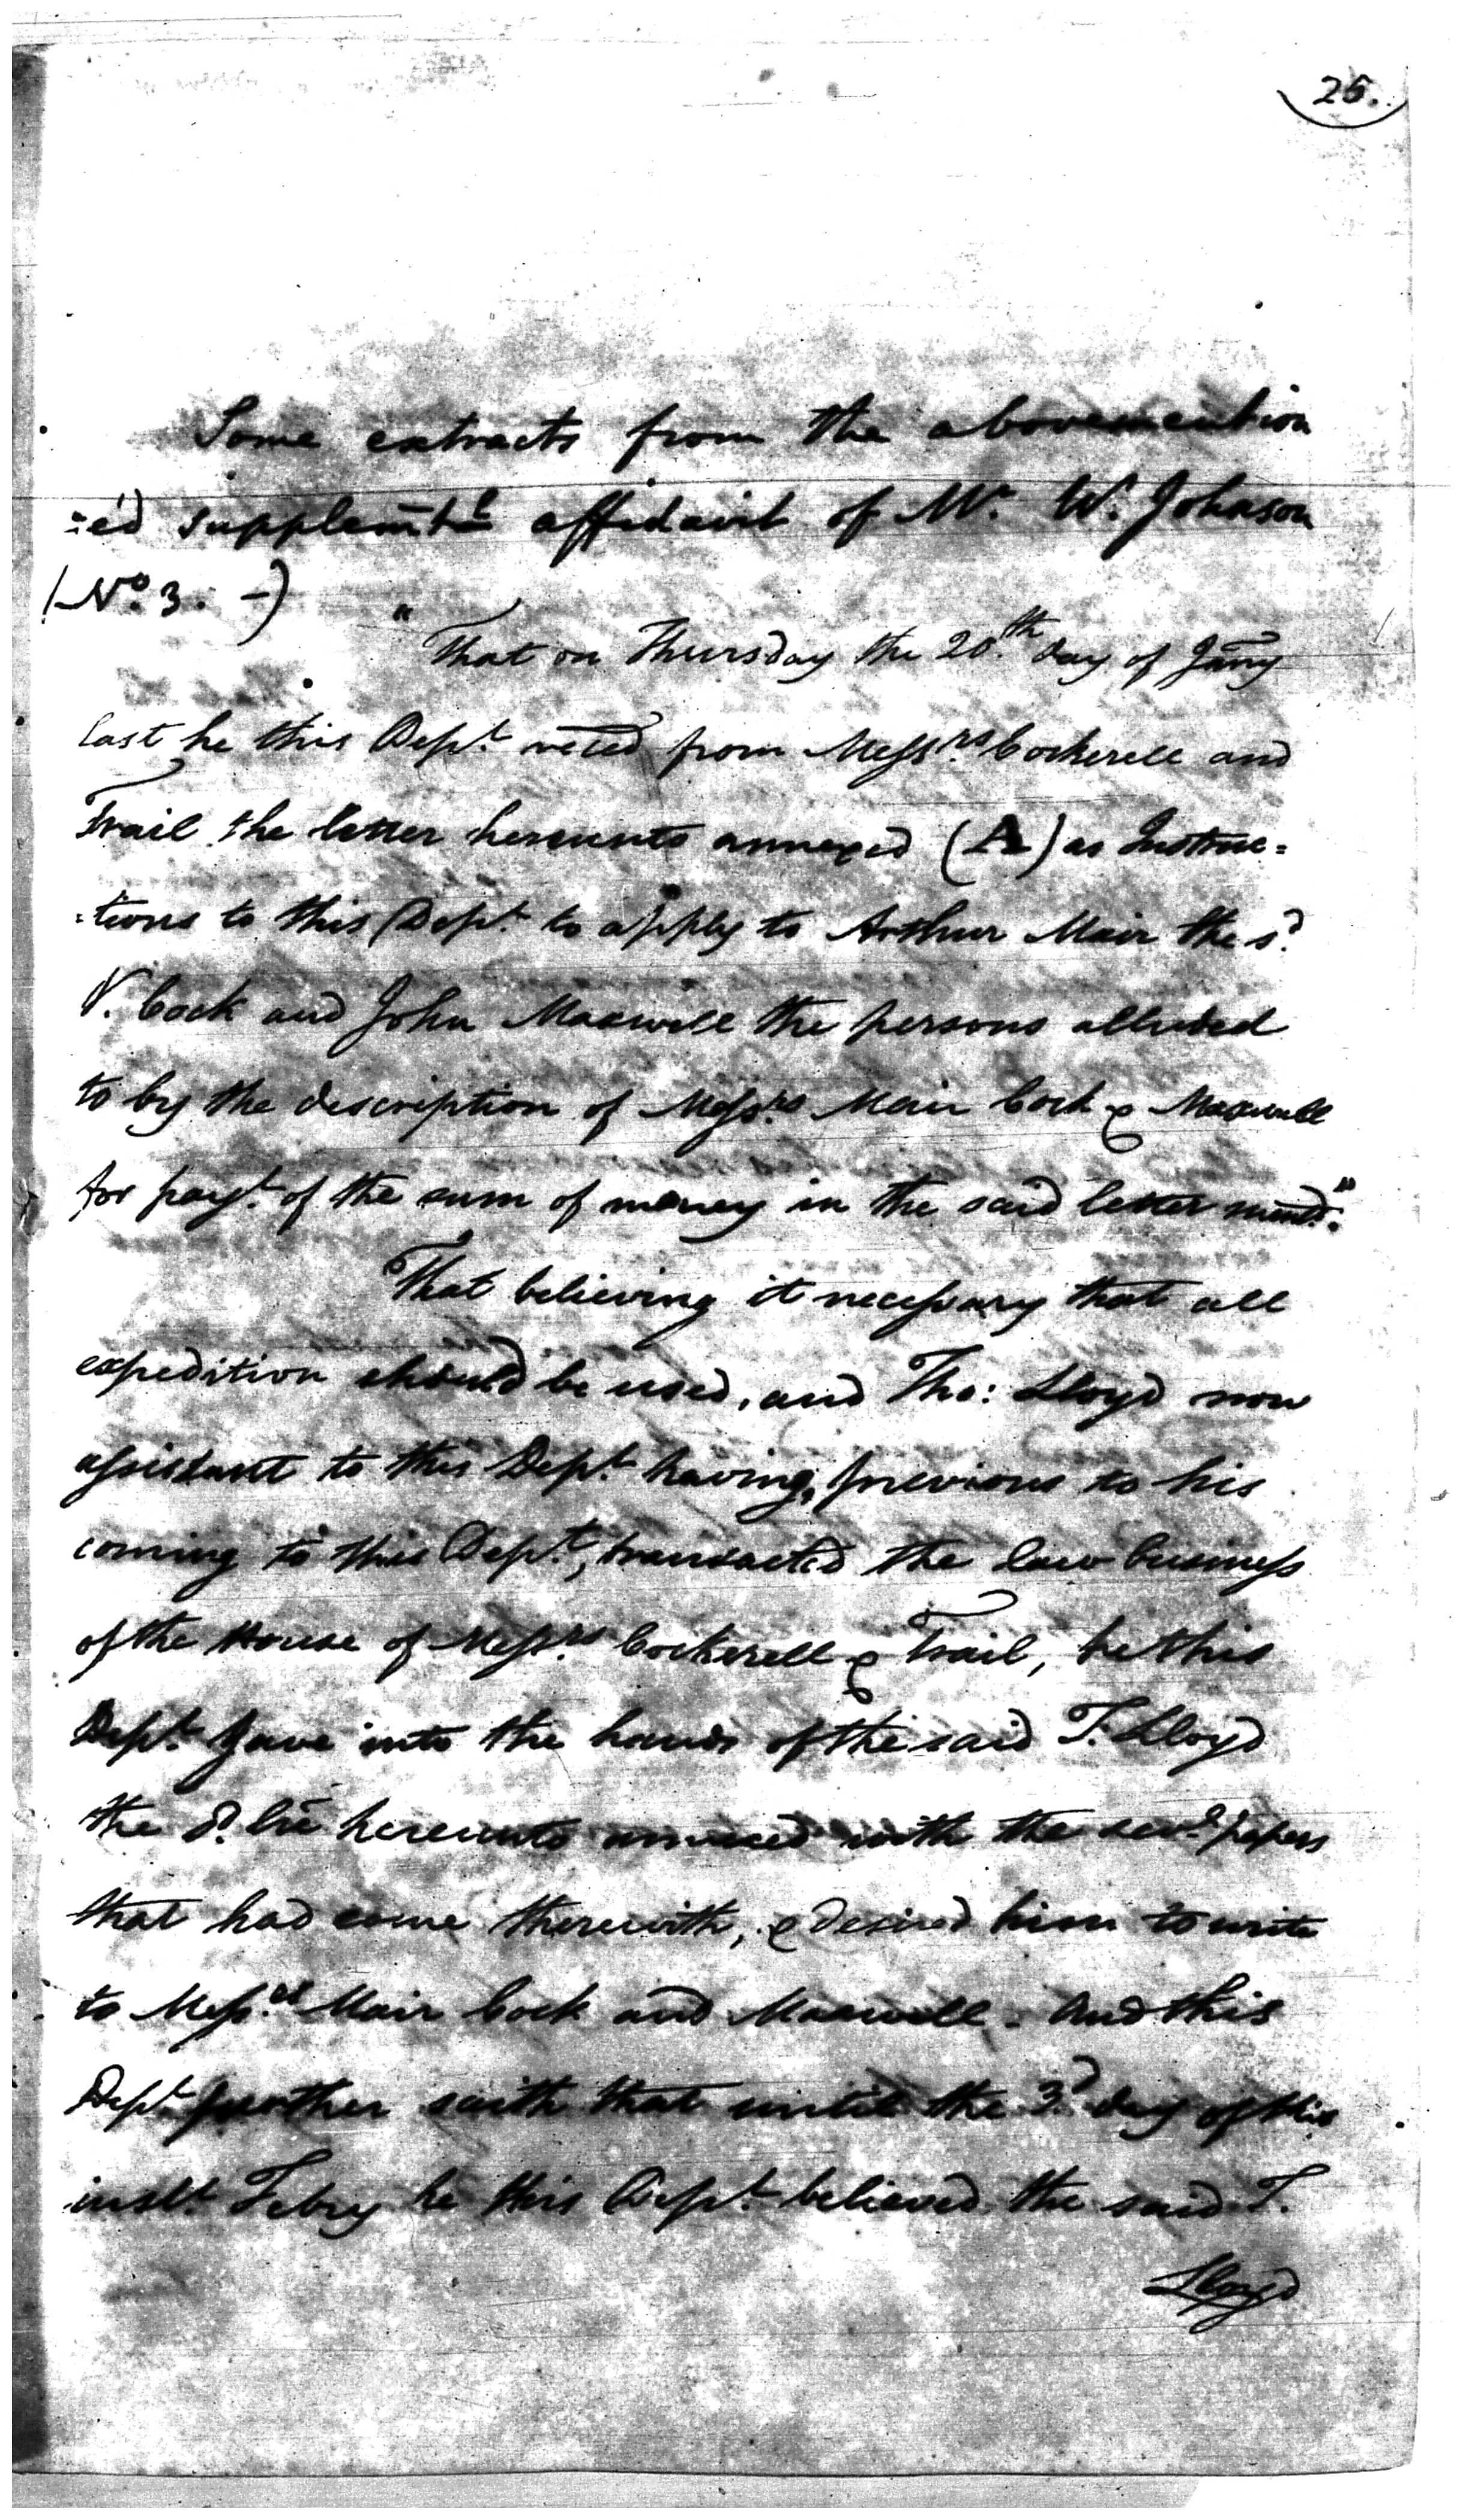 25.
Some extracts from the abovemention
=ed supplemtl affidavit of Mr. W. Johnson
(No. 3. -)
"That on Thursday the 20th. day of Jany
last he this Dept. reced from Messrs. Cockerell and
Trail the letter hereunto annexed (A) as Instruc=
=tions to this Dept. to apply to Arthur Mair the sd.
V. Cock and John Maxwell the persons alluded
to by the description of Messrs. Mair Cock & Maxwell
for payt. of the sum of money in the said letter mentd."
"That believing it necessary that all
expedition should be used, and Tho: Lloyd now
assistant to this Dept. having, previous to his
coming to this Dept., transacted the law business
of the House of Messrs. Cockerell & Trail, he this
Dept. gave into the hands of the said T. Lloyd
the sd. lre hereunto annexed with the sevl. papers
that had come therewith, & desired him to write
to Messrs. Mair Cock and Maxwell. And this
Dept. further saith that until the 3d. day of this
inst. Febry he this Dept. believed the said T.
Lloyd